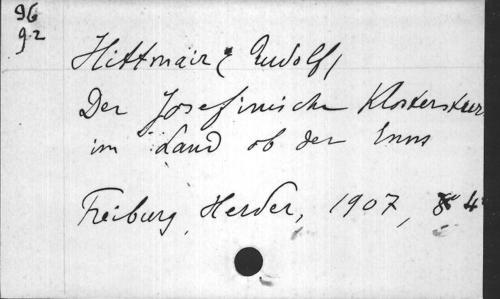 96
9.2
Hittmair (Rudolf)
Der Josefinische Klostersturm
im Land ob der Enns
Freiburg, Herder, 1907, 4°